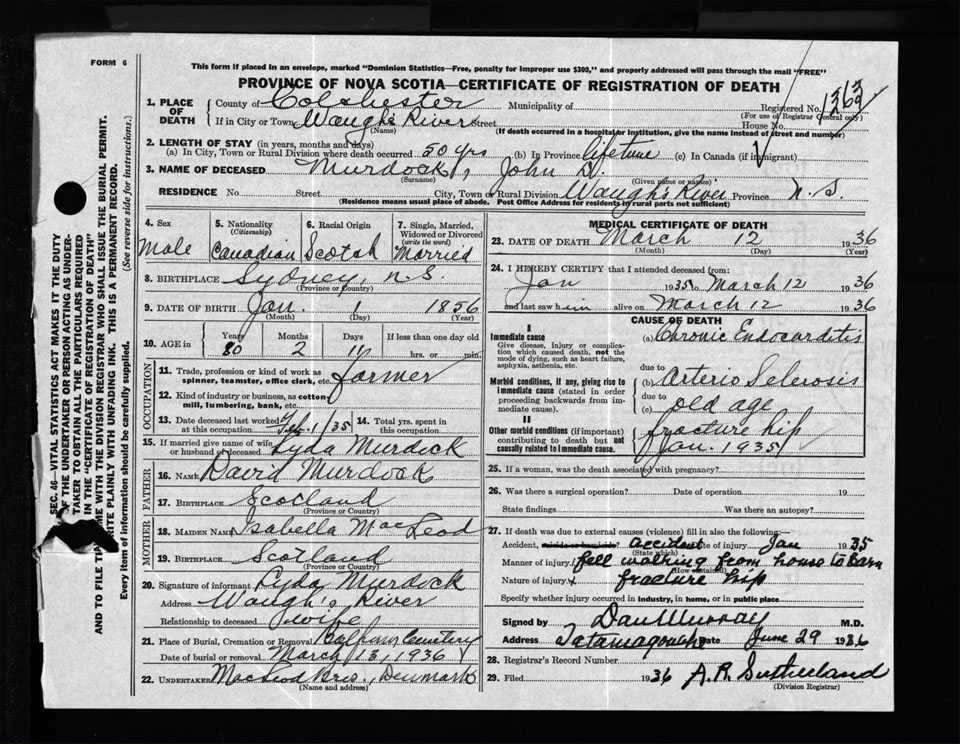 FORM 6
This form if placed in an envelope, marked "Dominion Statistics—Free, penalty for improper use $300," and properly addressed will pass through the mail "FREE"
PROVINCE OF NOVA SCOTIA—CERTIFICATE OF REGISTRATION OF DEATH
1. PLACE OF DEATH County of Colchester Municipality of Registered No.
(For use of Registrar General only)
If in City or Town Waugh's River Street House No.
(Name) (If death occurred in a hospital or institution, give the name instead of street and number)
2. LENGTH OF STAY (in years, months and days)
(a) In City, Town or Rural Division where death occurred 50 yrs (b) In Province lifetime (c) In Canada (if immigrant)
3. NAME OF DECEASED Murdock, John D.
(Surname) (Given name or names)
RESIDENCE No. Street City, Town or Rural Division Waugh's River Province N.S
(Residence means usual place of abode. Post Office Address for residents in rural parts not sufficient)
4. Sex Male
5. Nationality (Citizenship) Canadian
6. Racial Origin Scotch
7. Single, Married, Widowed or Divorced (write the word) Married
8. BIRTHPLACE Sydney, N.S.
(Province or Country)
9. DATE OF BIRTH Jan. 1856
(Month) (Day) (Year)
10. AGE in Years Months Days If less than one day old
80 2 11 hrs. or min.
OCCUPATION
11. Trade, profession or kind of work as spinner, teamster, office clerk, etc. farmer
12. Kind of industry or business, as cotton mill, lumbering, bank, etc.
13. Date deceased last worked at this occupation Feb. 1/35
14. Total yrs. spent in this occupation
15. If married give name of wife or husband of deceased Lyda Murdock
FATHER
16. NAME David Murdock
17. BIRTHPLACE Scotland
(Province or Country)
MOTHER
18. MAIDEN NAME Isabella MacLeod
19. BIRTHPLACE Scotland
(Province or Country)
20. Signature of informant Lyda Murdock
Address Waugh's River
Relationship to deceased wife
21. Place of Burial, Cremation or Removal Balfour Cemetery
Date of burial or removal March 13, 1936
22. UNDERTAKER MacLeod Bros., Denmark
(Name and address)
MEDICAL CERTIFICATE OF DEATH
23. DATE OF DEATH March 12 1936
(Month) (Day) (Year)
24. I HEREBY CERTIFY that I attended deceased from:
Jan 1935 to March 12 1936
and last saw him alive on March 12 1936
CAUSE OF DEATH
I
Immediate cause
Give disease, injury or complication which caused death, not the mode of dying, such as heart failure, asphyxia, asthenia, etc.
(a) Chronic Endocarditis
due to
Morbid conditions, if any, giving rise to immediate cause (stated in order proceeding backwards from immediate cause).
(b) Arterio Sclerosis
due to
(c) old age
II
Other morbid conditions (if important) contributing to death but not causally related to immediate cause.
fracture hip
Jan. 1935
25. If a woman, was the death associated with pregnancy?
26. Was there a surgical operation? Date of operation 19
State findings Was there an autopsy?
27. If death was due to external causes (violence) fill in also the following:
Accident, suicide or homicide? accident Date of injury Jan 1935
(State which)
Manner of injury fell walking from house to Barn
(How sustained)
Nature of injury fracture hip
Specify whether injury occurred in industry, in home, or in public place
Signed by Dan Murray M.D.
Address Tatamagouche Date June 29 1936
28. Registrar's Record Number
29. Filed 1936 A. R. Sutherland
(Division Registrar)
SEC. 46—VITAL STATISTICS ACT MAKES IT THE DUTY
OF THE UNDERTAKER OR PERSON ACTING AS UNDER-
TAKER TO OBTAIN ALL THE PARTICULARS REQUIRED
IN THE "CERTIFICATE OF REGISTRATION OF DEATH"
AND TO FILE THE SAME WITH THE DIVISION REGISTRAR WHO SHALL ISSUE THE BURIAL PERMIT.
WRITE PLAINLY WITH UNFADING INK. THIS IS A PERMANENT RECORD.
Every item of information should be carefully supplied. (See reverse side for instructions.)